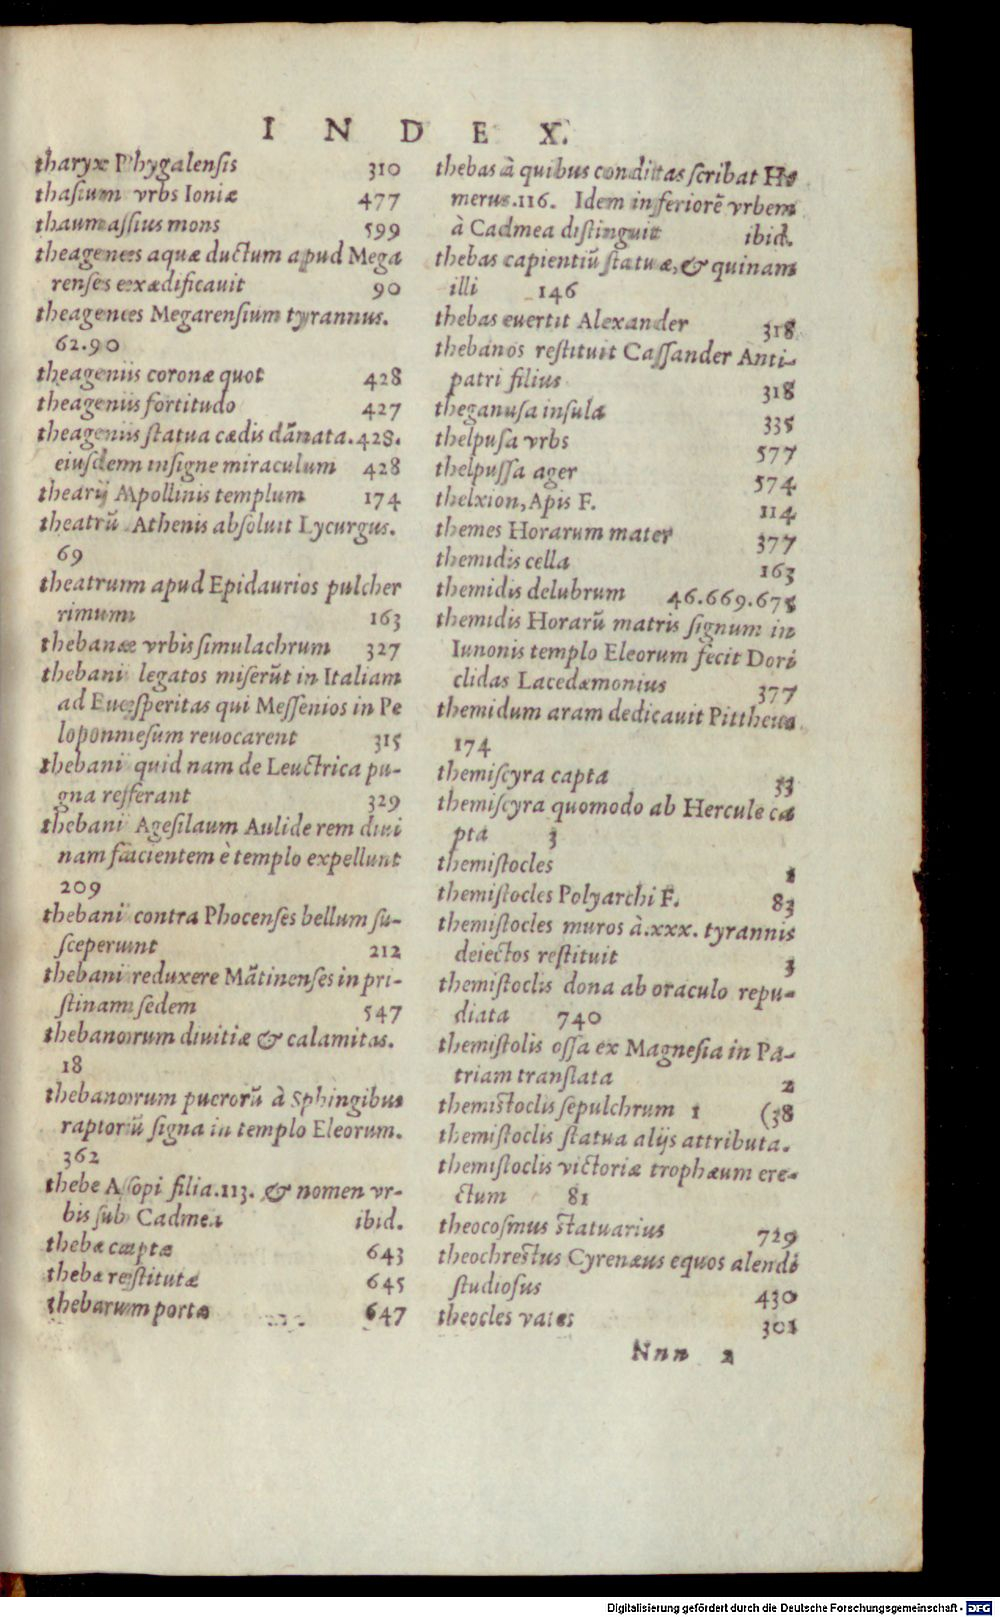 INDEX.
tharyx Phygalensis 310
thasium vrbs Ioniæ 477
thaumassius mons 599
theagenes aquæ ductum apud Mega
renses exædificauit 90
theagenes Megarensium tyrannus.
62.90
theageniis coronæ quot 428
theageniis fortitudo 427
theageniis statua cædis dānata. 428.
eiusdem insigne miraculum 428
thearij Apollinis templum 174
theatrū Athenis absoluit Lycurgus.
69
theatrum apud Epidaurios pulcher
rimum 163
thebanæ vrbis simulachrum 327
thebani legatos miserūt in Italiam
ad Euesperitas qui Messenios in Pe
loponnesum reuocarent 315
thebani quid nam de Leuctrica pu-
gna refferant 329
thebani Agesilaum Aulide rem diui
nam facientem è templo expellunt
209
thebani contra Phocenses bellum su-
sceperunt 212
thebani reduxere Mātinenses in pri-
stinam sedem 547
thebanorum diuitiæ & calamitas.
18
thebanorum puerorū à Sphingibus
raptorū signa in templo Eleorum.
362
thebe Assopi filia. 113. & nomen vr-
bis sub Cadmea ibid.
thebæ captæ 643
thebæ restitutæ 645
thebarum portæ 647
thebas à quibus conditas scribat Ho
merus. 116. Idem inferiorē vrbem
à Cadmea distinguit ibid.
thebas capientiū statuæ, & quinam
illi 146
thebas euertit Alexander 318
thebanos restituit Cassander Anti-
patri filius 318
theganusa insula 335
thelpusa vrbs 577
thelpussa ager 574
thelxion, Apis F. 114
themes Horarum mater 377
themidis cella 163
themidis delubrum 46.669.675
themidis Horarū matris signum in
Iunonis templo Eleorum fecit Dori
clidas Lacedæmonius 377
themidum aram dedicauit Pittheus
174
themiscyra capta 33
themiscyra quomodo ab Hercule ca
pta 3
themistocles 1
themistocles Polyarchi F. 83
themistocles muros à .xxx. tyrannis
deiectos restituit 3
themistoclis dona ab oraculo repu-
diata 740
themistolis ossa ex Magnesia in Pa-
triam translata 2
themistoclis sepulchrum 1 (38
themistoclis statua alijs attributa.
themistoclis victoriæ trophæum ere-
ctum 81
theocosmus statuarius 729
theochrestus Cyrenæus equos alendi
studiosus 430
theocles vates 301
Nnn 2
Digitalisierung gefördert durch die Deutsche Forschungsgemeinschaft - DFG